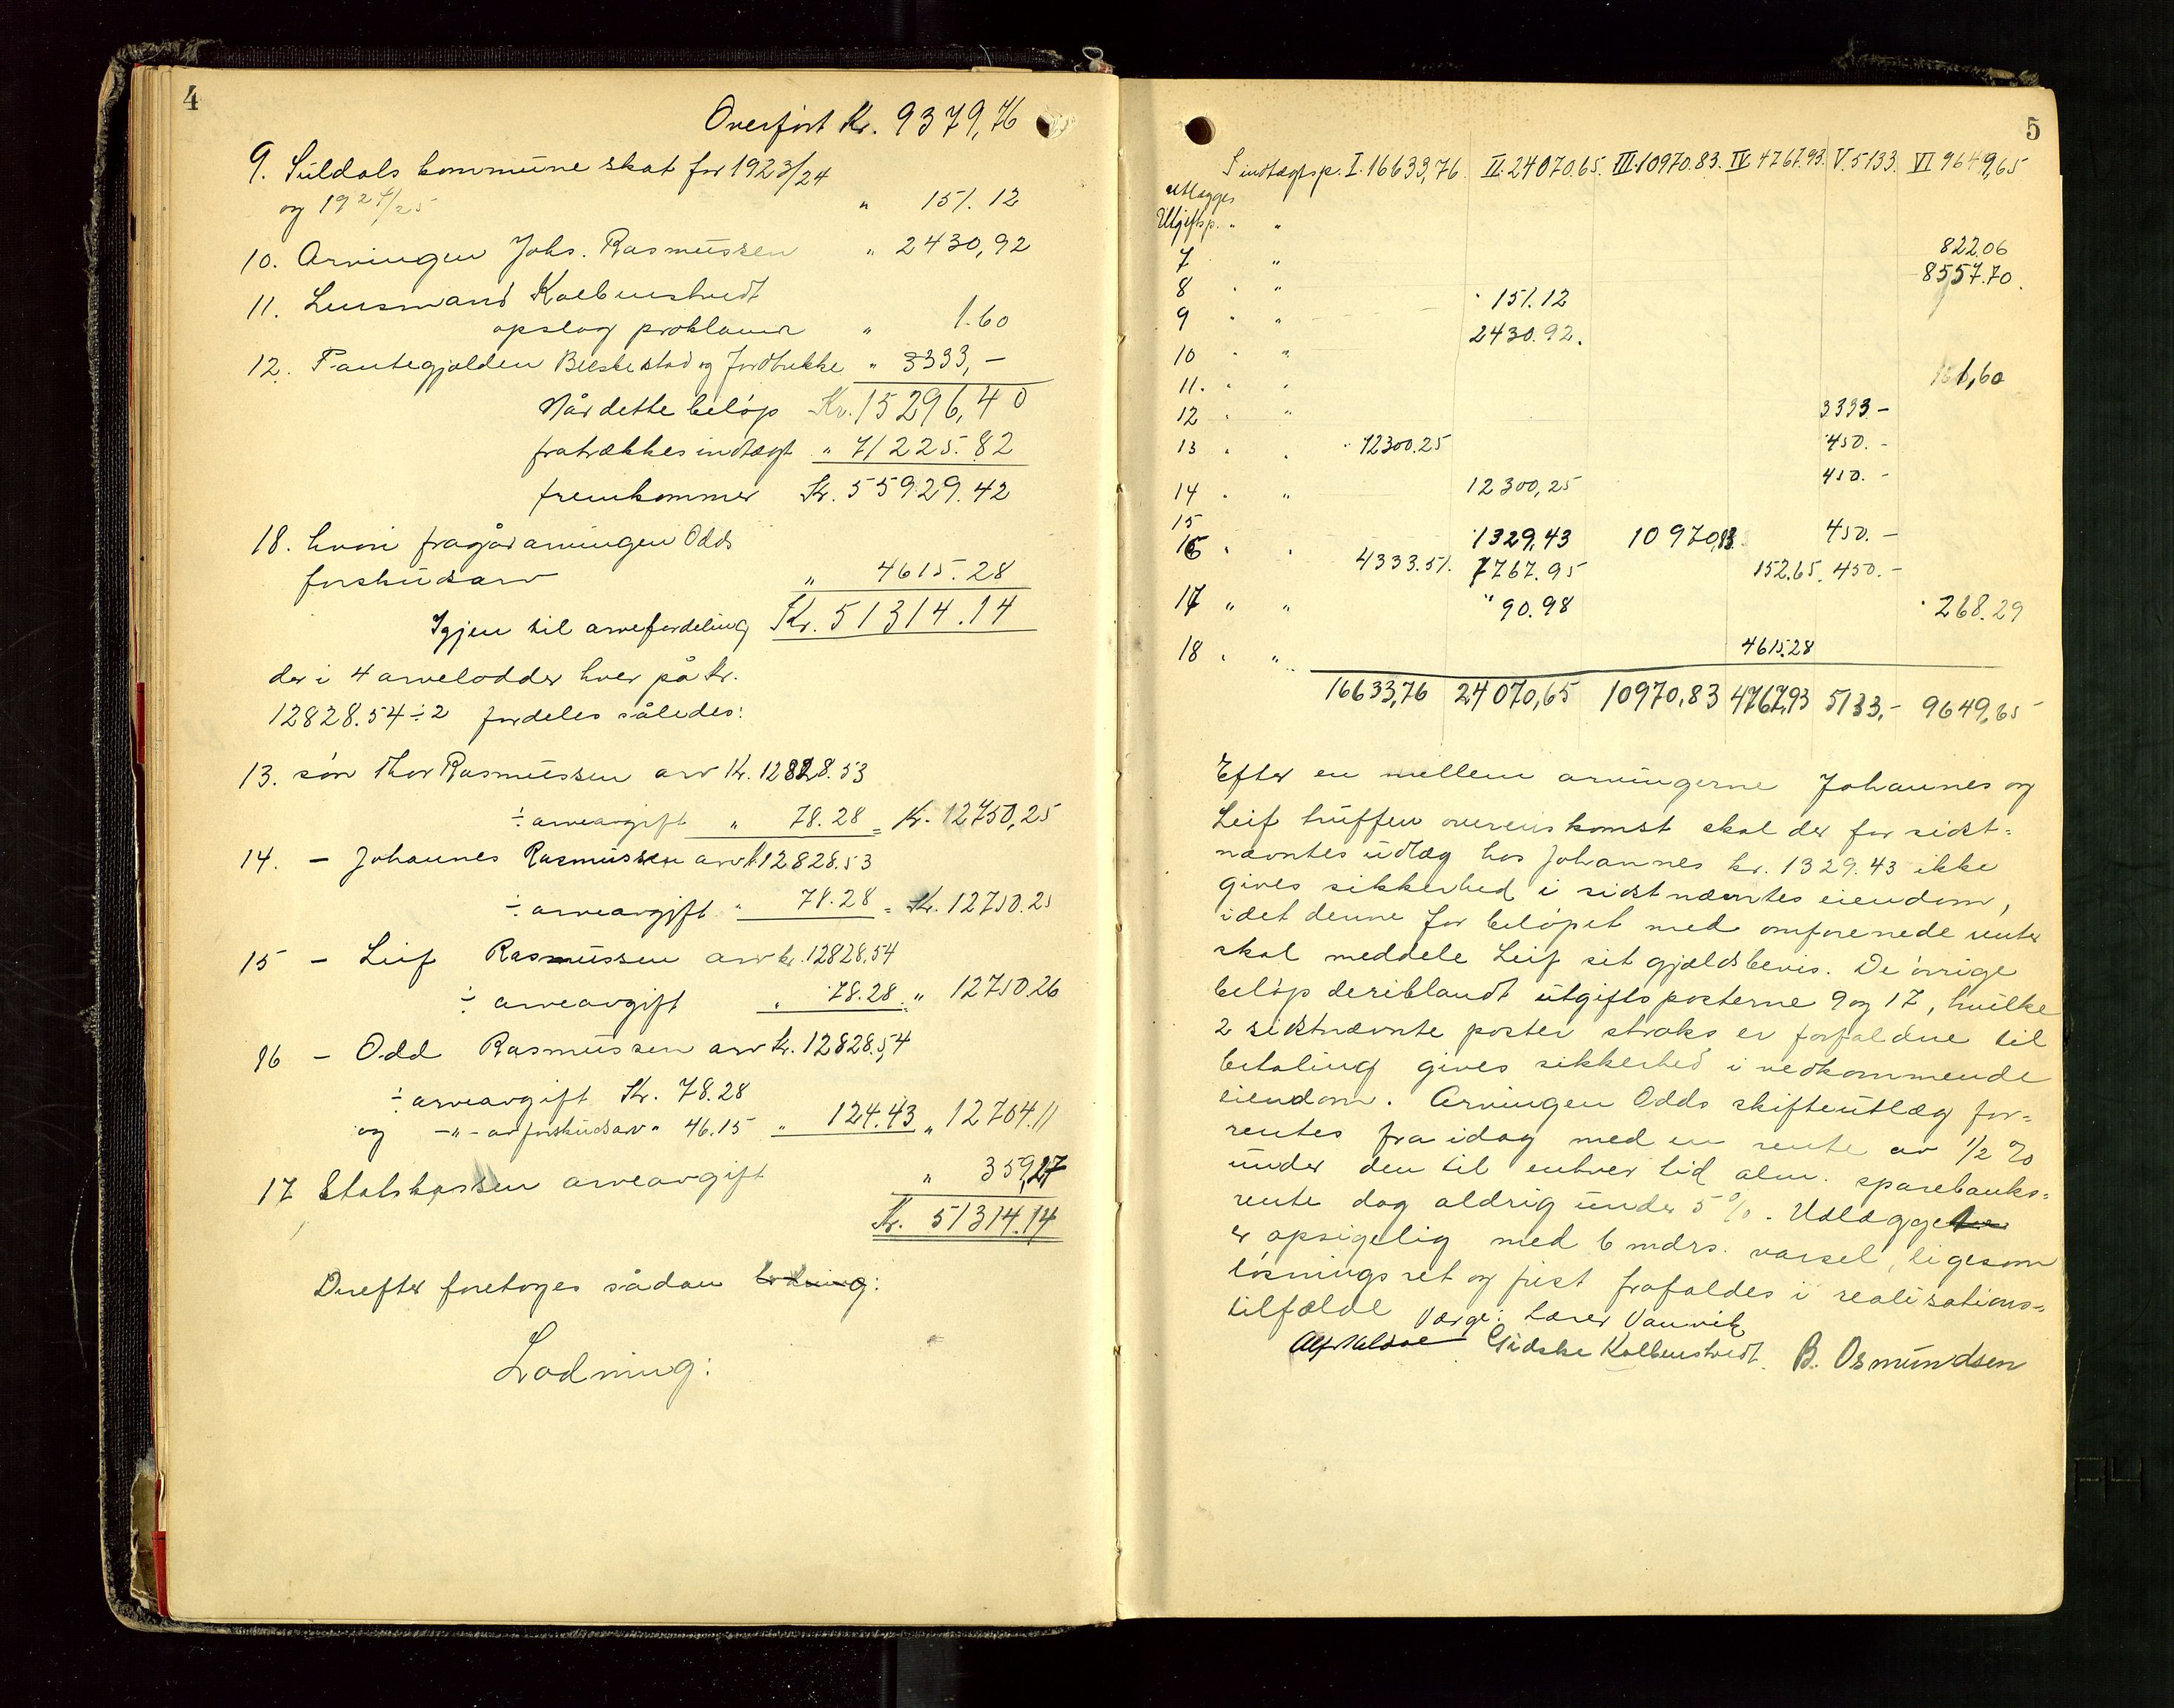 4
Overført Kr. 9379,76
9. Suldals kommune skat for 1923/24
og 1924/25 " 151.12
10. Arvingen Johs. Rasmussen " 2430,92
11. Lensmand Kolbenstvedt
opslag proklama " 1.60
12. Pantegjælden Bleskestad og Jordbrekke " 3333,-
Når dette beløp Kr. 15296,40
fratrækkes indtægt " 71225.82
fremkommer Kr. 55929.42
18. hvori fragår arvingen Odds
forskudsarv " 4615.28
Igjen til arvefordeling Kr. 51314.14
der i 4 arvelodder hver på kr.
12828.54 ÷ 2 fordeles således:
13. søn Thor Rasmussen arv Kr. 12828.53
÷ arveavgift " 78.28 = Kr. 12750,25
14. - Johannes Rasmussen arv k 12828.53
÷ arveavgift " 78.28 = Kr. 12750.25
15 - Leif Rasmussen arv kr. 12828.54
÷ arveavgift " 78.28 = " 12750.26
16 - Odd Rasmussen arv kr. 12828.54
÷ arveavgift Kr. 78.28
og -"- av forskudsarv " 46.15 " 124.43 " 12704.11
17 Statskassen arveavgift " 359,27
Kr. 51314.14
Derefter foretoges sådan lodning:
Lodning:
5
I indtægtsp. I. 16633,76. II. 24070.65. III. 10970.83. IV 4767.93. V. 5133. VI 9649,65
utlægges
Utgiftsp. " "
7 " 822.06
8 " " 8557.70.
9 " " 151.12
10 " " 2430.92.
11. " " 1,60
12 " " 3333-
13 " " 12300.25 450.-
14 " " 12300,25 450.-
15 1329,43 10970,83 450.-
16 " " 4333.51. 7767.95 152.65. 450.-
17 " " " 90.98 268.29
18 " " 4615.28
16633,76 24070,65 10970,83 4767,93 5133,- 9649,65
Efter en mellem arvingerne Johannes og
Leif truffen overenskomst skal der for sidst-
nævntes utlæg hos Johannes kr. 1329.43 ikke
gives sikkerhed i sidstnævntes eiendom,
idet denne for beløpet med omforenede renter
skal meddele Leif sit gjældsbevis. De øvrige
beløp deriblandt utgiftsposterne 9 og 17, hvilke
2 sidstnævnte poster straks er forfaldne til
betaling gives sikkerhed i vedkommende
eiendom. Arvingen Odds skifteutlæg for-
rentes fra idag med en rente av 1/2 %
under den til enhver tid alm. sparebanks-
rente dog aldrig under 5 %. Udlægget
er opsigelig med 6 mdrs. varsel, ligesom
løsningsret og frist frafaldes i realisations-
tilfælde Værge: Lærer Vanvik
Gidske Kolbenstvedt. B. Osmundsen